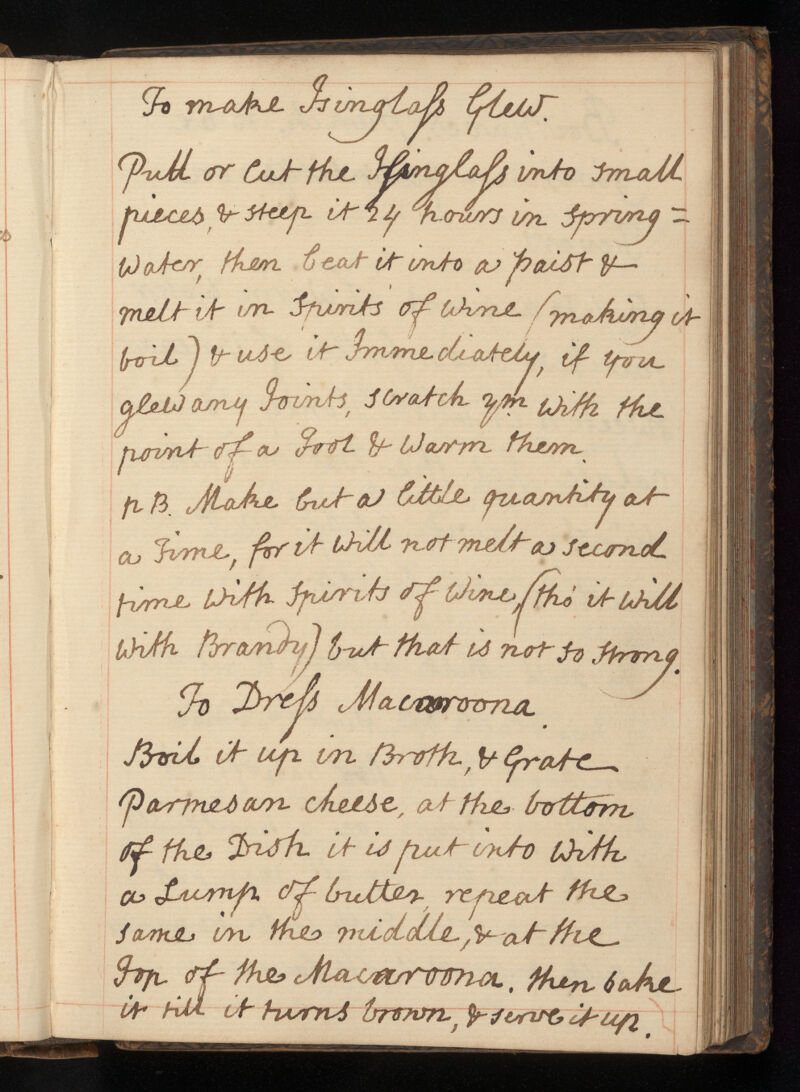 To make Isinglaſs Glew.
Pull or Cut the Iſinglaſs into small
pieces, & steep it 24 hours in Spring=
Water, then beat it into a paist &
melt it in Spirits of Wine (making it
boil) & use it Immediately, if you
glew any Joints, scratch ym with the
point of a Tool & Warm them.
NB. Make but a little quantity at
a Time, for it Will not melt a second
time With Spirits of Wine, (tho' it Will
With Brandy) but that is not so strong.
To Dreſs Macaroona
Boil it up in Broth, & Grate
Parmesan cheese, at the bottom
of the Dish it is put into With
a Lump of butter, repeat the
same in the middle, & at the
Top of the Macaroona. then bake
it till it turns brown, & serve it up.